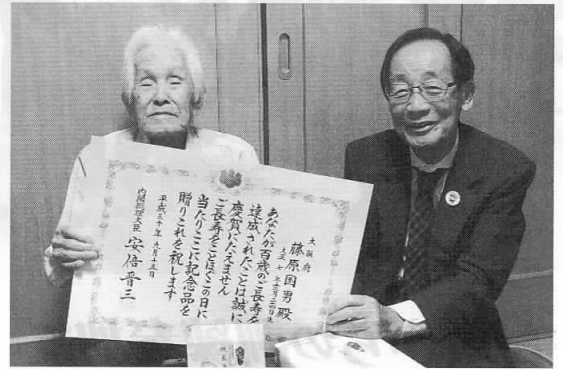 大阪府
藤原国男殿
大正七年十一月二十四日生
あなたが百歳のご長寿を
達成されたことは誠に
慶賀にたえません
ご長寿をことほぐこの日に
当たりここに記念品を
贈りこれを祝します
平成三十年九月十五日
内閣総理大臣 安倍晋三